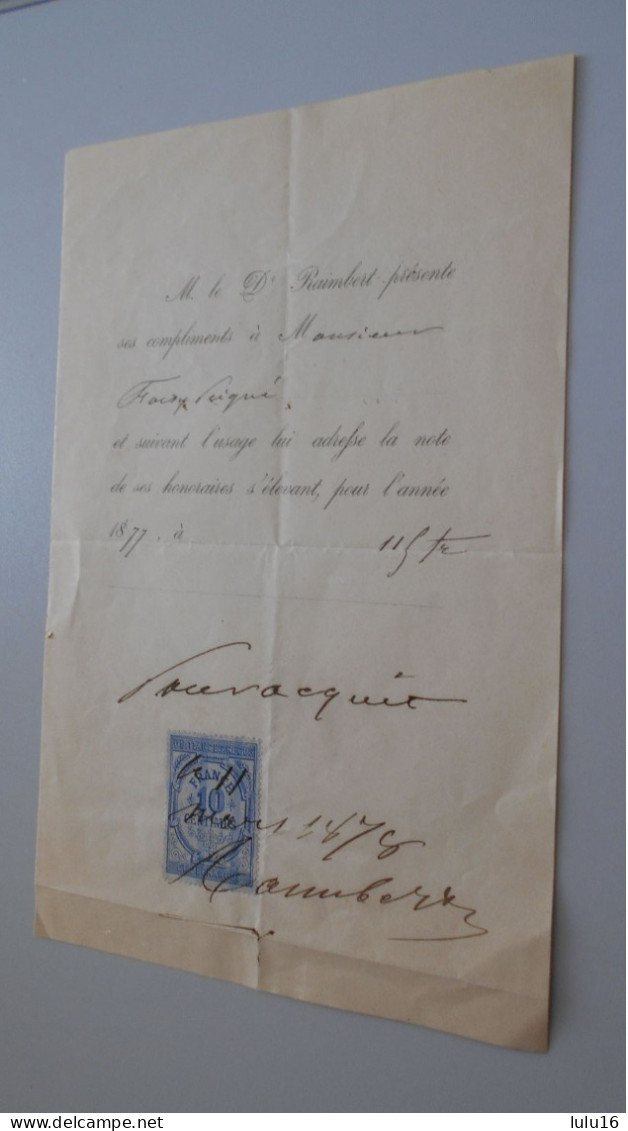 M. le Dr Raimbert présente
ses compliments à Monsieur
et suivant l'usage lui adresse la note
de ses honoraires s'élevant, pour l'année
1877, à 115 fr
Pour acquit
QUITTANCES
FRANCE
10
CENTIMES
le 11
mars 1878
Raimbert
lulu16